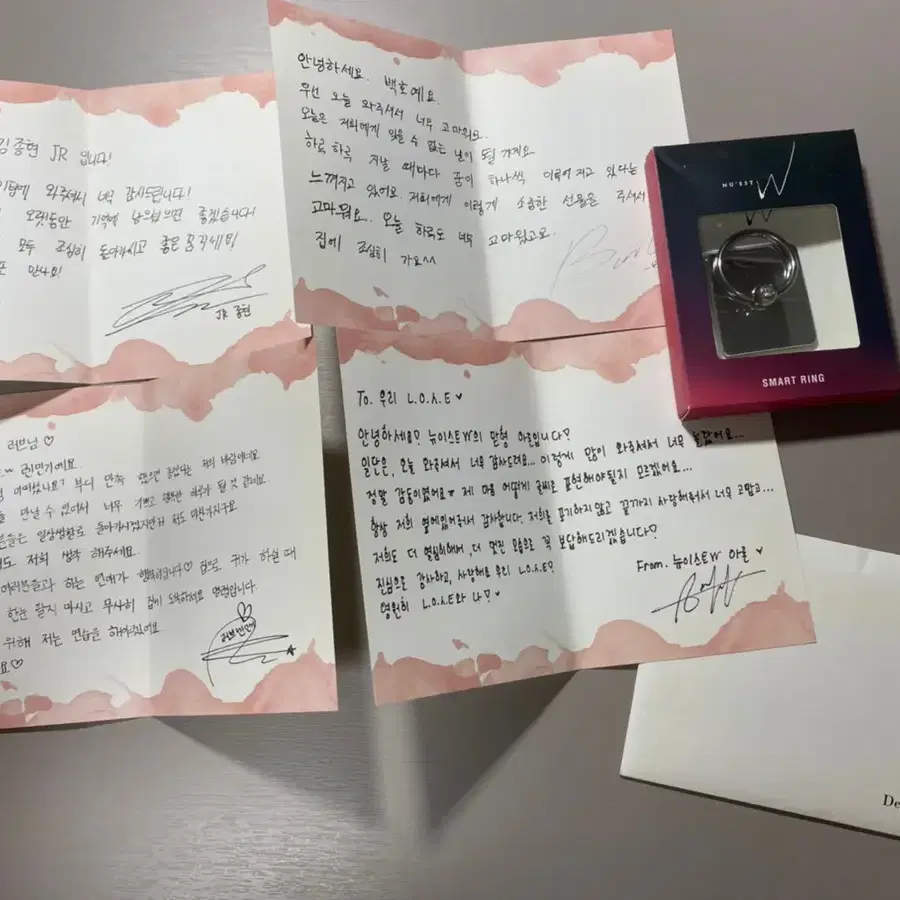 김종현 JR 입니다!
와주셔서 너무 감사드립니다!
오랫동안 기억에 남으셨으면 좋겠습니다!
모두 조심히 돌아가시고 좋은 꿈 꾸세요!
만나요!
JR 종현
안녕하세요. 백호예요.
우선 오늘 와주셔서 너무 고마워요.
오늘은 저희에게 잊을 수 없는 날이 될 거예요.
하루하루 지날 때마다 꿈이 하나씩 이루어지고 있다는
느껴지고 있어요. 저희에게 이렇게 소중한 선물을 주셔서
고마워요. 오늘 하루도 너무 고마웠고요.
집에 조심히 가요^^
NU'EST W
SMART RING
러브님 ♡
민기예요.
부디 만족 했으면 좋겠다는 저의 바람이에요
만날 수 있어서 너무 기쁘고 행복한 하루가 될 것 같네요.
일상생활로 돌아가시겠지만
저희 생각 해주세요.
여러분들과 하는 연애가 행복하답니다♡ 집으로 귀가 하실 때
한눈 팔지 마시고 무사히 집에 도착하세요
위해 저는 연습을 해야겠어요
♡
To. 우리 L.O.Λ.E ♥
안녕하세요? 뉴이스트W의 맏형 아론입니다?
일단은, 오늘 와주셔서 너무 감사드려요... 이렇게 많이 와주셔서 너무 놀랐어요...
정말 감동이였어요ㅠ 제 마음 어떻게 글씨로 표현해야될지 모르겠어요...
항상 저희 옆에있어줘서 감사합니다. 저희를 포기하지않고 끝까지 사랑해줘서 너무 고맙고...
저희도 더 열심히해서, 더 멋진 모습으로 꼭 보답해드리겠습니다?
진심으로 감사하고, 사랑해요 우리 L.O.Λ.E?
영원히 L.O.Λ.E와 나? ♥
From. 뉴이스트W 아론 ♥
De